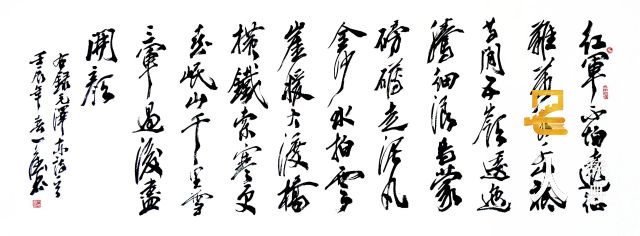 紅軍不怕遠征
難萬山祇
等閒五嶺逶迤
騰細浪烏蒙
磅礴走泥丸
金沙水拍雲
崖暖大渡橋
橫鐵索寒更
喜岷山千里雪
三軍過後盡
開顏
右錄毛澤东詩
壬辰年春